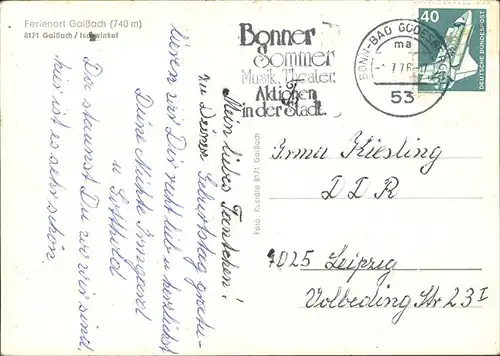 Ferienort Gaißach (740 m)
8171 Gaißach / Isarwinkel
Bonner
Sommer
Musik, Theater,
Aktionen
in der Stadt.
BONN-BAD GODESBERG
ma
-7.76
53
40
DEUTSCHE BUNDESPOST
Foto: Kustols 8171 Gaißach
Mein liebes Tantchen!
Zu Deinem Geburtstag gratu-
lieren wir Dir recht lieb u. herzlichst
Deine Nichte Irmgard
u. Gotthold
Da staunst Du wo wir sind.
hier ist es sehr schön.
Irma Kiesling
DDR
7025 Leipzig
Volbeding Str 23 I